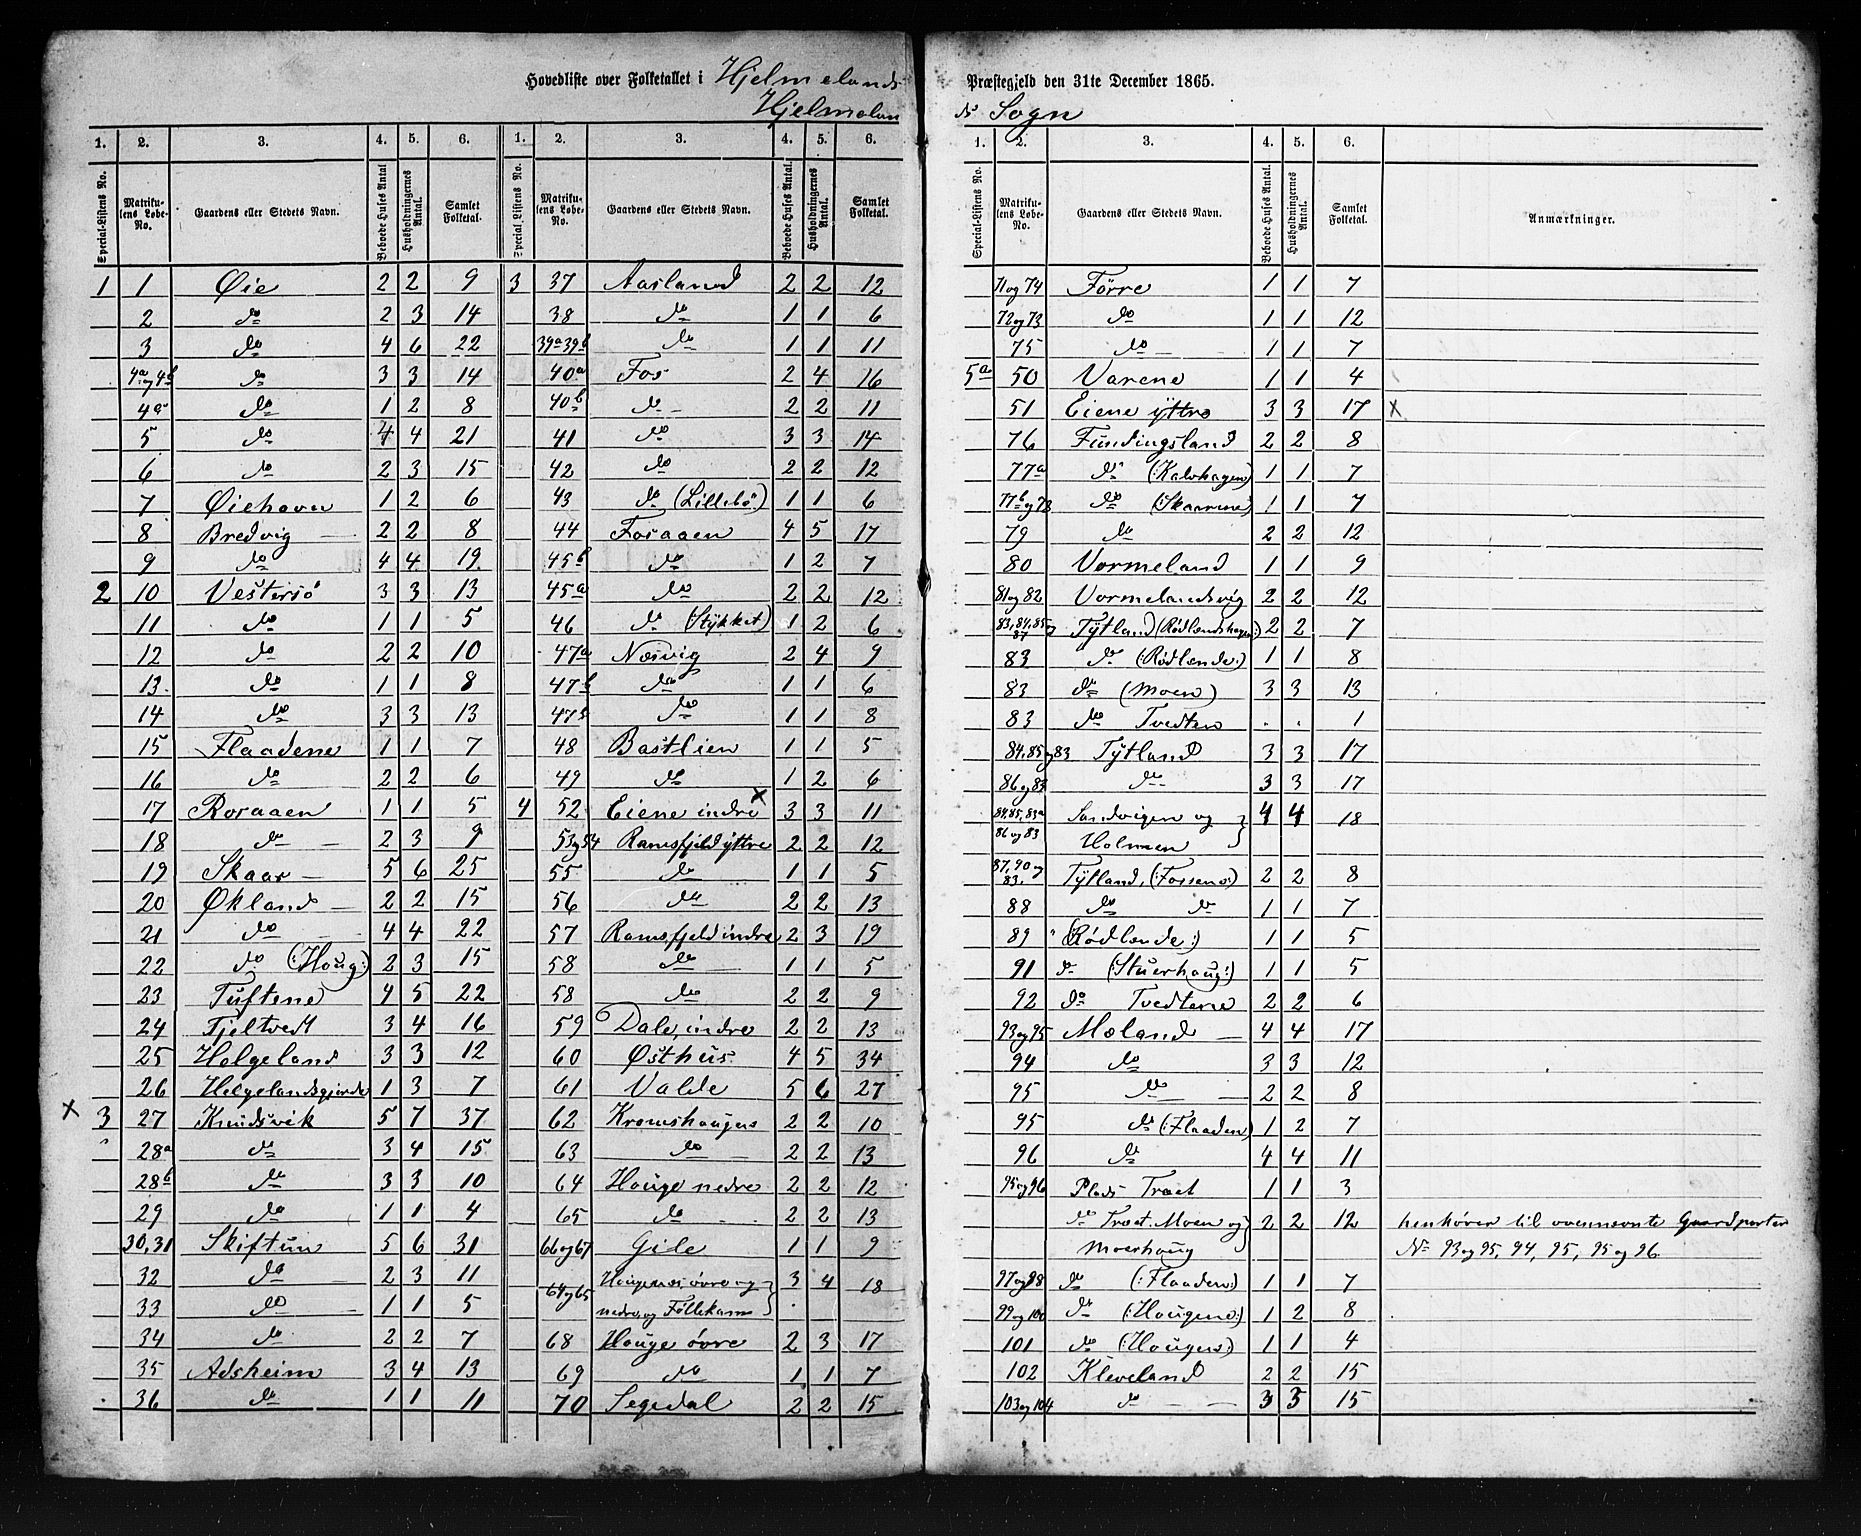 Hovedliste over Folketallet i Hjelmelands Præstegjeld den 31te December 1865.
Hjelmelands Sogn
1. 2. 3. 4. 5. 6. 1. 2. 3. 4. 5. 6.
Special-Listens No. Matrikulens Løbe-No. Gaardens eller Stedets Navn. Beboede Huses Antal Husholdningernes Antal. Samlet Folketal. Special-Listens No. Matrikulens Løbe-No. Gaardens eller Stedets Navn. Beboede Huses Antal. Husholdningernes Antal. Samlet Folketal
1 1 Øie 2 2 9 3 37 Aasland 2 2 12
2 do 2 3 14 38 do 1 1 6
3 do 4 6 22 39a 39b do 1 1 11
4a og 4b do 3 3 14 40a Fos 2 4 16
4a do 1 2 8 40b do 2 2 11
5 do 4 4 21 41 do 3 3 14
6 do 2 3 15 42 do 2 2 12
7 Øiehaven 1 2 6 43 do (Lillebö:) 1 1 6
8 Bredvig 2 2 8 44 Fosaaen 4 5 17
9 do 4 4 19 45b do 1 2 7
2 10 Vestersö 3 3 13 45a do 2 2 12
11 do 1 1 5 46 do (Stykket) 1 2 6
12 do 2 2 10 47a Næsvig 2 4 9
13 do 1 1 8 47b do 1 1 6
14 do 3 3 13 47b do 1 1 8
15 Flaadene 1 1 7 48 Bastlien 1 1 5
16 do 2 2 6 49 do 1 2 6
17 Roraaen 1 1 5 4 52 Eiene indre x 3 3 11
18 do 2 3 9 53 og 54 Ramsfjeld yttre 2 2 12
19 Skaar 5 6 25 55 do 1 1 5
20 Økland 2 2 15 56 do 2 2 13
21 do 4 4 22 57 Ramsfjeld indre 2 3 19
22 do (:Houg:) 2 3 15 58 do 1 1 5
23 Tuftene 4 5 22 58 do 2 2 9
24 Fjeltvedt 3 4 16 59 Dale, indre 2 2 13
25 Helgeland 3 3 12 60 Østhus 4 5 34
26 Helgelandsgjerde 1 3 7 61 Valde 5 6 27
x 3 27 Knudsvik 5 7 37 62 Kromshougen 2 2 10
28a do 3 4 15 63 do 2 2 13
28b do 3 3 10 64 Houge nedre 2 2 12
29 do 1 1 4 65 do 2 2 13
30, 31 Skiftun 5 6 31 66 og 67 Gile 1 1 9
32 do 2 3 11 64 og 65 Hougenes øvre og 3 4 18
33 do 1 1 5 nedre, og Föllekam
34 do 2 2 7 68 Houge øvre 2 3 17
35 Adsheim 3 4 13 69 do 1 1 7
36 do 1 1 11 70 Segedal 2 2 15
1. 2. 3. 4. 5. 6.
Special-Listens No. Matrikulens Løbe-No. Gaardens eller Stedets Navn. Beboede Huses Antal. Husholdningernes Antal. Samlet Folketal. Anmærkninger.
71 og 74 Förre 1 1 7
72 og 73 do 1 1 12
75 do 1 1 7
5a 50 Varene 1 1 4
51 Eiene yttre 3 3 17 x
76 Fundingsland 2 2 8
77a do (:Kalvhagen) 1 1 7
77b og 78 do (Skaarene) 1 1 7
79 do 2 2 12
80 Vormeland 1 1 9
81 og 82 Vormelandsvig 2 2 12
83, 84, 85 og 87 Tytland (Rødlandshagen:) 2 2 7
83 do (:Rødlende:) 1 1 8
83 do (Moen) 3 3 13
83 do Tvedten . . 1
84, 85 og 83 Tytland 3 3 17
86 og 83 do 3 3 17
84, 85, 83a Sandvigen og 4 4 18
86 og 83 Holmen
87, 90 og 83. Tytland, (:Fossene:) 2 2 8
88 do do 1 1 7
89 " (Rödlende:) 1 1 5
91 do (:Stuerhaug:) 1 1 5
92 do Tvedtene 2 2 6
93 og 95 Mæland 4 4 17
94 do 3 3 12
95 do 2 2 8
95 do (:Flaaden) 1 2 7
96 do 4 4 11
95 og 96 Plads Træt 1 1 3
do Træt, Moen og 2 2 12 henhører til ovennævnte Gaardparter
Moerhoug No 93 og 95, 94, 95, 95 og 96.
97 og 98 do (:Flaaden:) 1 1 7
99 og 100 do (:Hougene:) 1 2 8
101 do (:Hougen:) 1 1 4
102 Kleveland 2 2 15
103 og 104 do 3 3 15